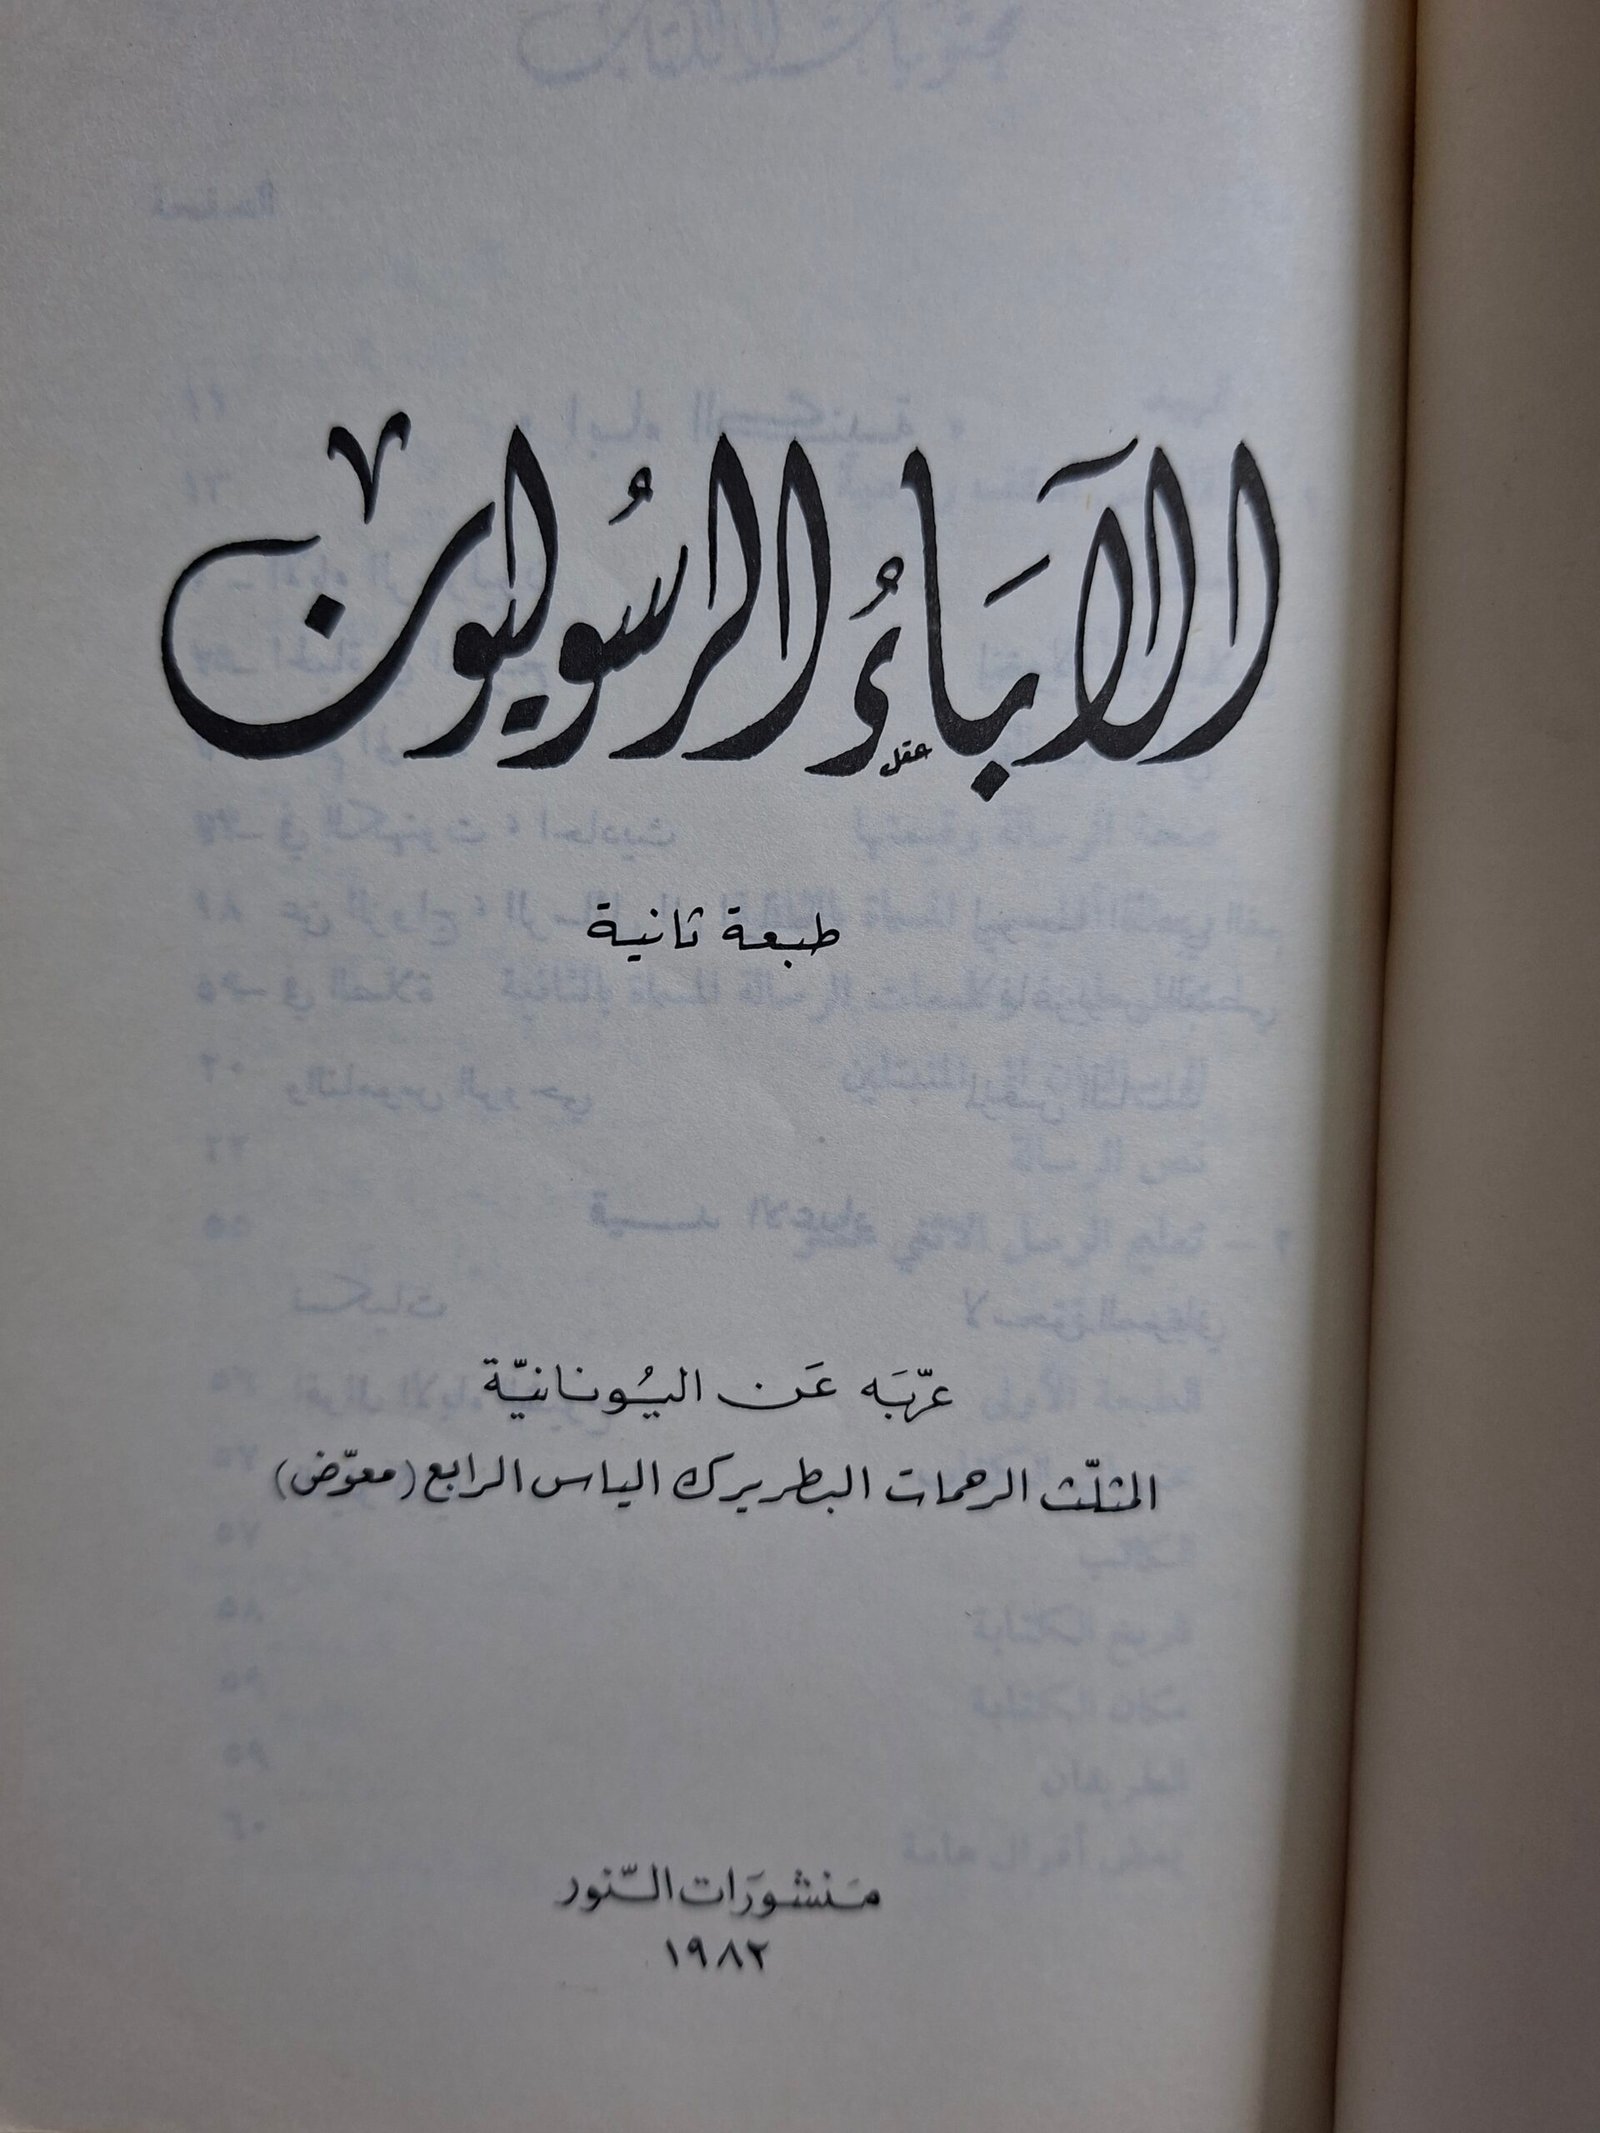 الآباءُ الرسُوليون
عقل
طبعة ثانية
عرّبَه عَن اليُونانيّة
المثلّث الرحمات البطريرك الياس الرابع (معوّض)
مَنشورَات النّور
١٩٨٢